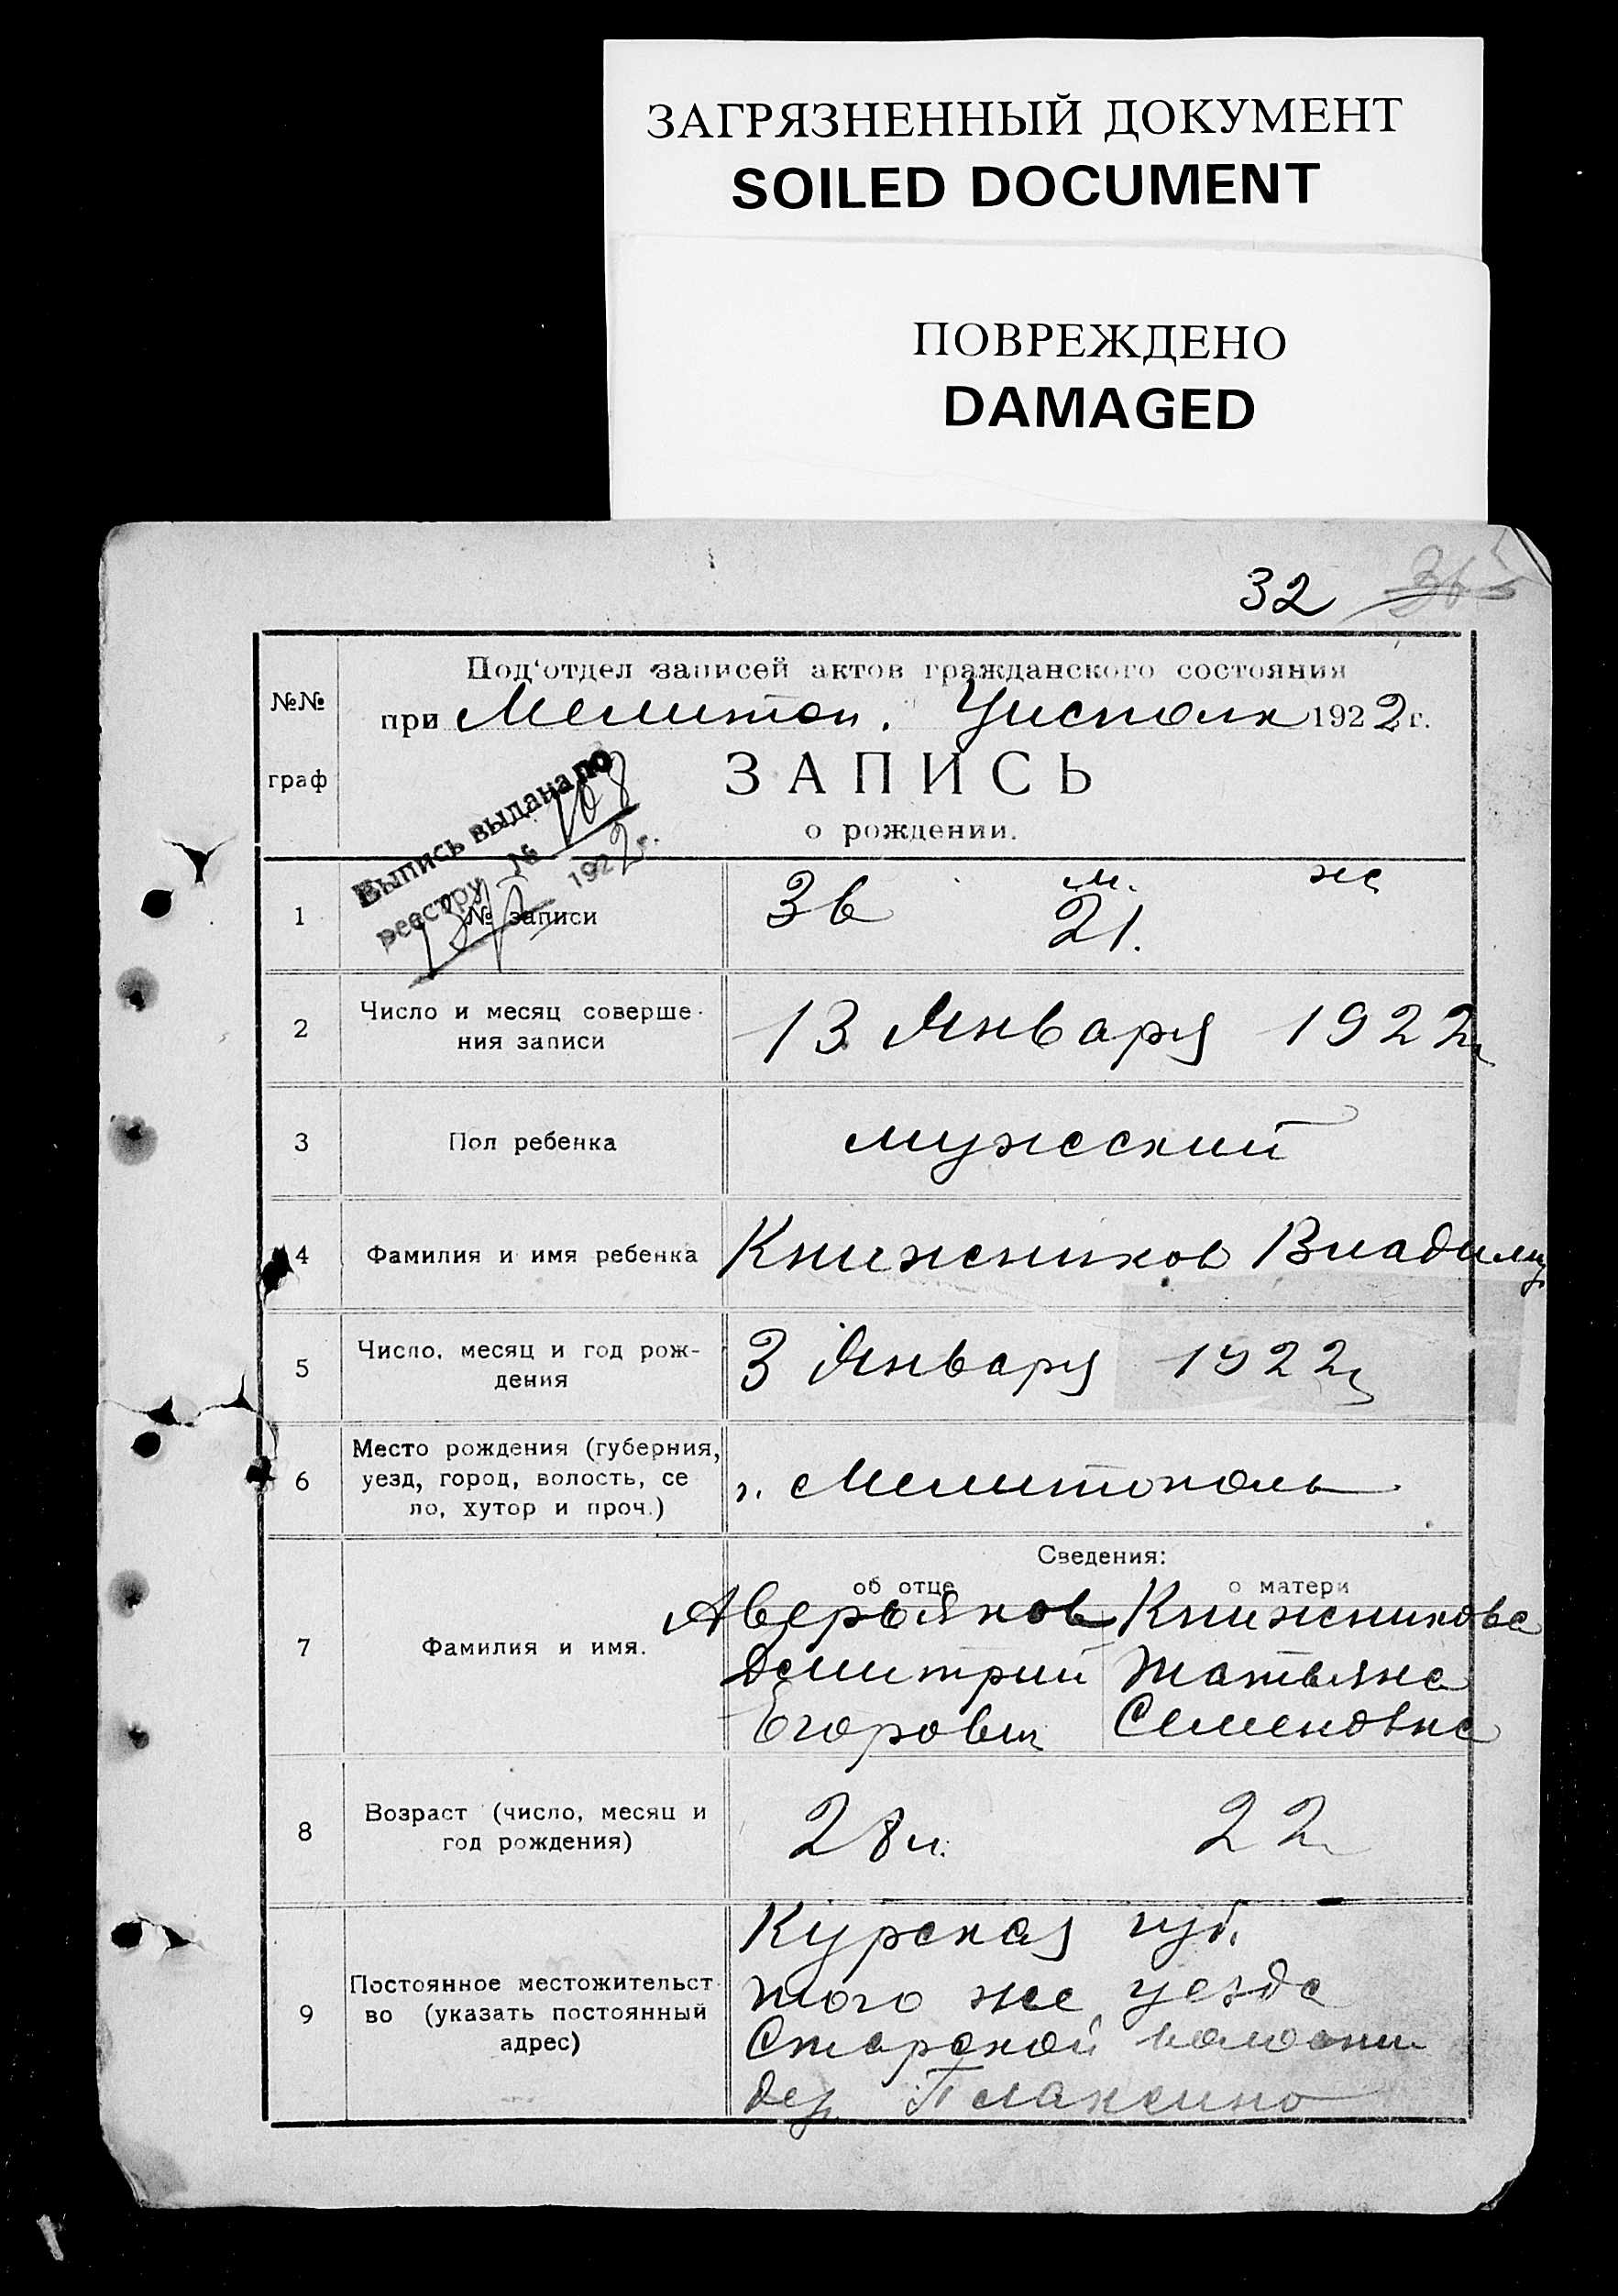 ЗАГРЯЗНЕННЫЙ ДОКУМЕНТ
SOILED DOCUMENT
ПОВРЕЖДЕНО
DAMAGED
32
№№ граф
Под‘отдел записей актов гражданского состояния
при Мелитоп. Уисполк 1922 г.
ЗАПИСЬ
о рождении.
Выпись выдана по
реестру № 108
1922 г.
1
№ записи
36
м.
21.
ж
2
Число и месяц соверше-
ния записи
13 Января 1922
3
Пол ребенка
мужеский
4
Фамилия и имя ребенка
Книжников Владими
5
Число, месяц и год рож-
дения
3 Января 1922
6
Место рождения (губерния,
уезд, город, волость, се
ло, хутор и проч.)
г. Мелитополь
Сведения:
об отце
о матери
7
Фамилия и имя.
Аверьянов
Демитрий
Егорович
Книжникова
Татьяна
Семеновна
8
Возраст (число, месяц и
год рождения)
28 л.
22
9
Постоянное местожительст
во (указать постоянный
адрес)
Курская губ.
того же уезда
волости
дер Плаксино